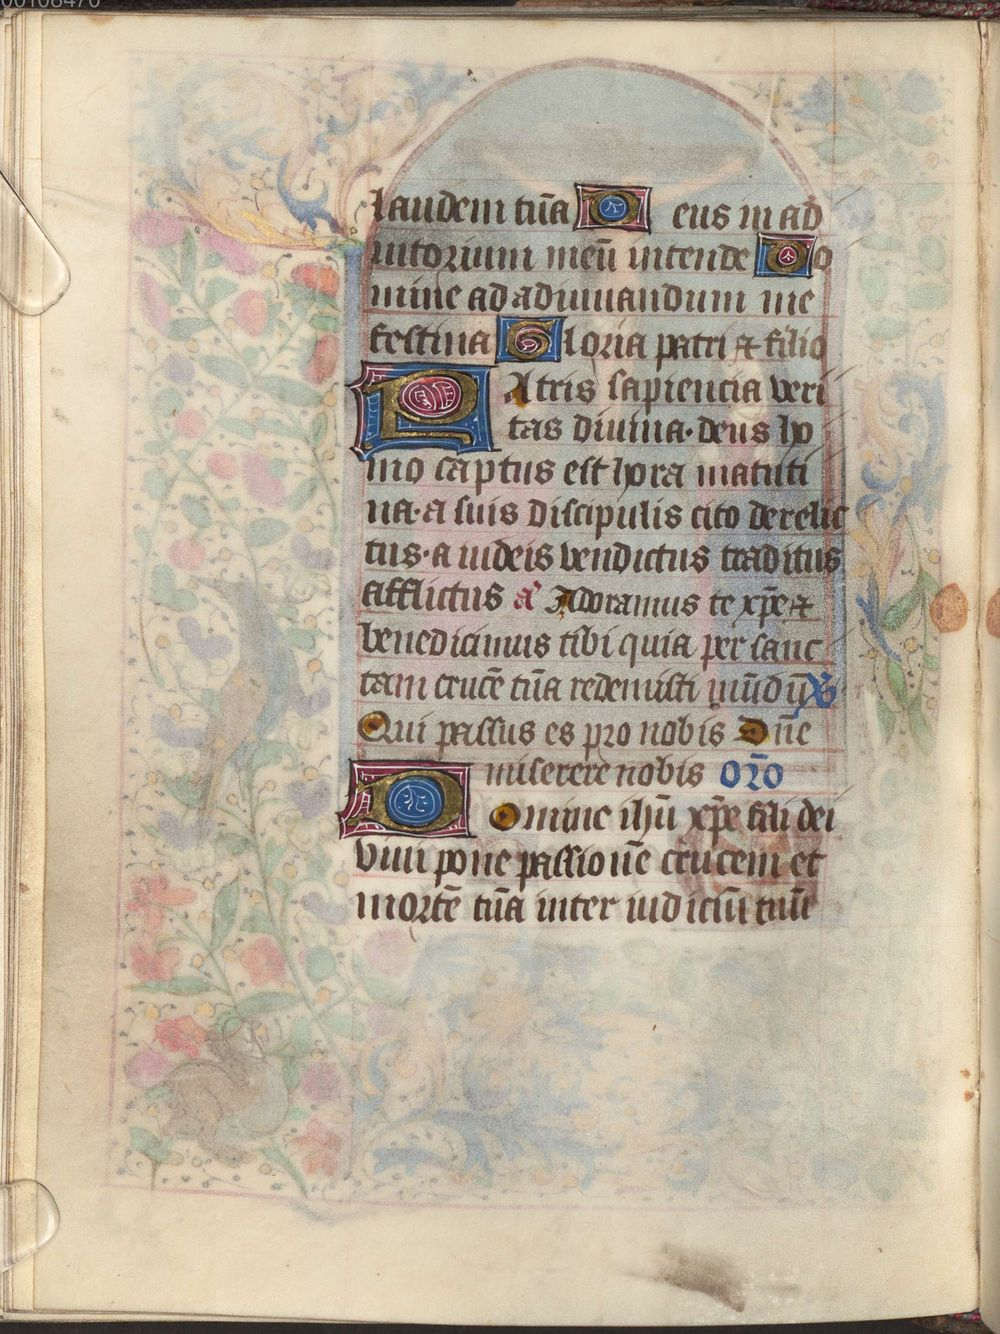 laudem tuā Deus in ad
iutorium meū intende Do
mine ad adiuuandum me
festina Gloria patri et filio
Patris sapiencia veri
tas diuina · deus ho
mo captus est hora matuti
na · a suis discipulis cito derelic
tus · a iudeis vendictus traditus
afflictus a᷎ Adoramus te xp̄e et
benedicimus tibi quia per sanc
tam crucē tuā redemisti mūdū ℣
Qui passus es pro nobis Dn̄e
miserere nobis orō
Domine ihū xp̄e fili dei
viui pone passionē crucem et
mortē tuā inter iudiciū tuū